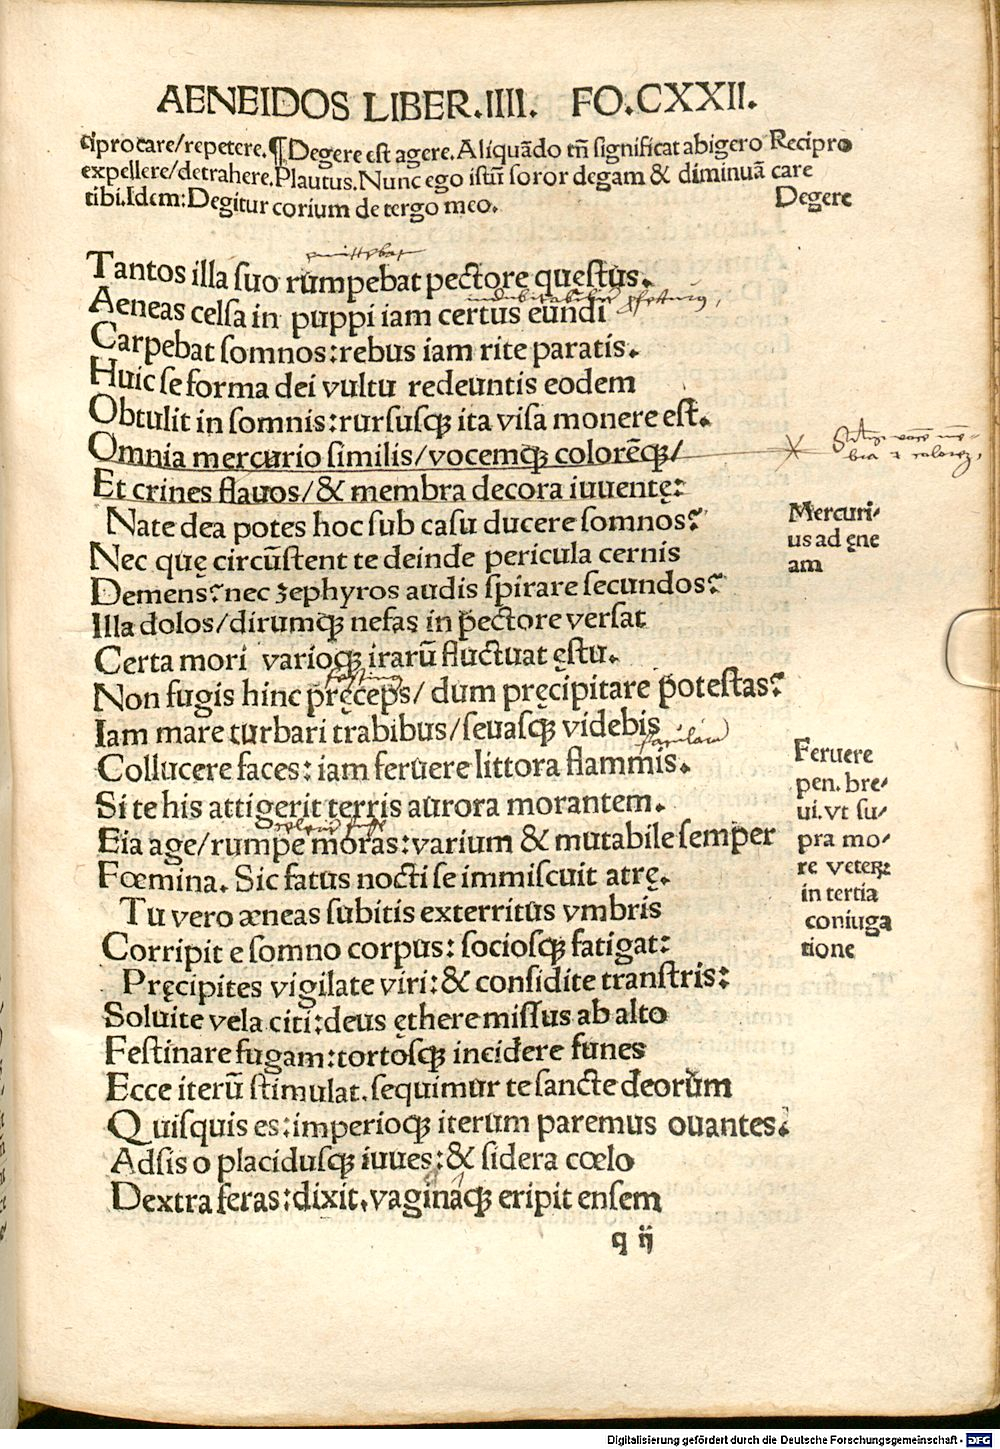 AENEIDOS LIBER.IIII. FO.CXXII.
ciprocare/repetere.¶Degere est agere.Aliquãdo tñ significat abigero Recipro
expellere/detrahere.Plautus.Nunc ego istũ soror degam & diminuã care
tibi.Idem:Degitur corium de tergo meo. Degere
emittebat
Tantos illa suo rumpebat pectore questus.
Aeneas celsa in puppi iam certus eundi
Carpebat somnos:rebus iam rite paratis.
Huic se forma dei vultu redeuntis eodem
Obtulit in somnis:rursusqꝫ ita visa monere est.
Omnia mercurio similis/vocemqꝫ colorẽqꝫ/
Et crines flauos/& membra decora iuuentę:
Nate dea potes hoc sub casu ducere somnos?
Nec quę circũstent te deinde pericula cernis
Demens?nec zephyros audis spirare secundos?
Illa dolos/dirumqꝫ nefas in pectore versat
Certa mori varioqꝫ irarũ fluctuat ęstu.
Non fugis hinc pręceps/ dum pręcipitare potestas?
Iam mare turbari trabibus/seuasqꝫ videbis
Collucere faces:iam feruere littora flammis.
Si te his attigerit terris aurora morantem.
Eia age/rumpe moras:varium & mutabile semper
Fœmina. Sic fatus nocti se immiscuit atrę.
Tu vero æneas subitis exterritus vmbris
Corripit e somno corpus: sociosqꝫ fatigat:
Pręcipites vigilate viri:& considite transtris:
Soluite vela citi:deus ęthere missus ab alto
Festinare fugam:tortosqꝫ incidere funes
Ecce iterũ stimulat.sequimur te sancte deorum
Quisquis es:imperioqꝫ iterum paremus ouantes.
Adsis o placidusqꝫ iuues:& sidera cœlo
Dextra feras:dixit.vaginaqꝫ eripit ensem
q ij
Mercuri-
us ad ęne
am
Feruere
pen. bre-
ui. vt su-
pra mo-
re veteꝝ
in tertia
coniuga
tione
Digitalisierung gefördert durch die Deutsche Forschungsgemeinschaft - DFG